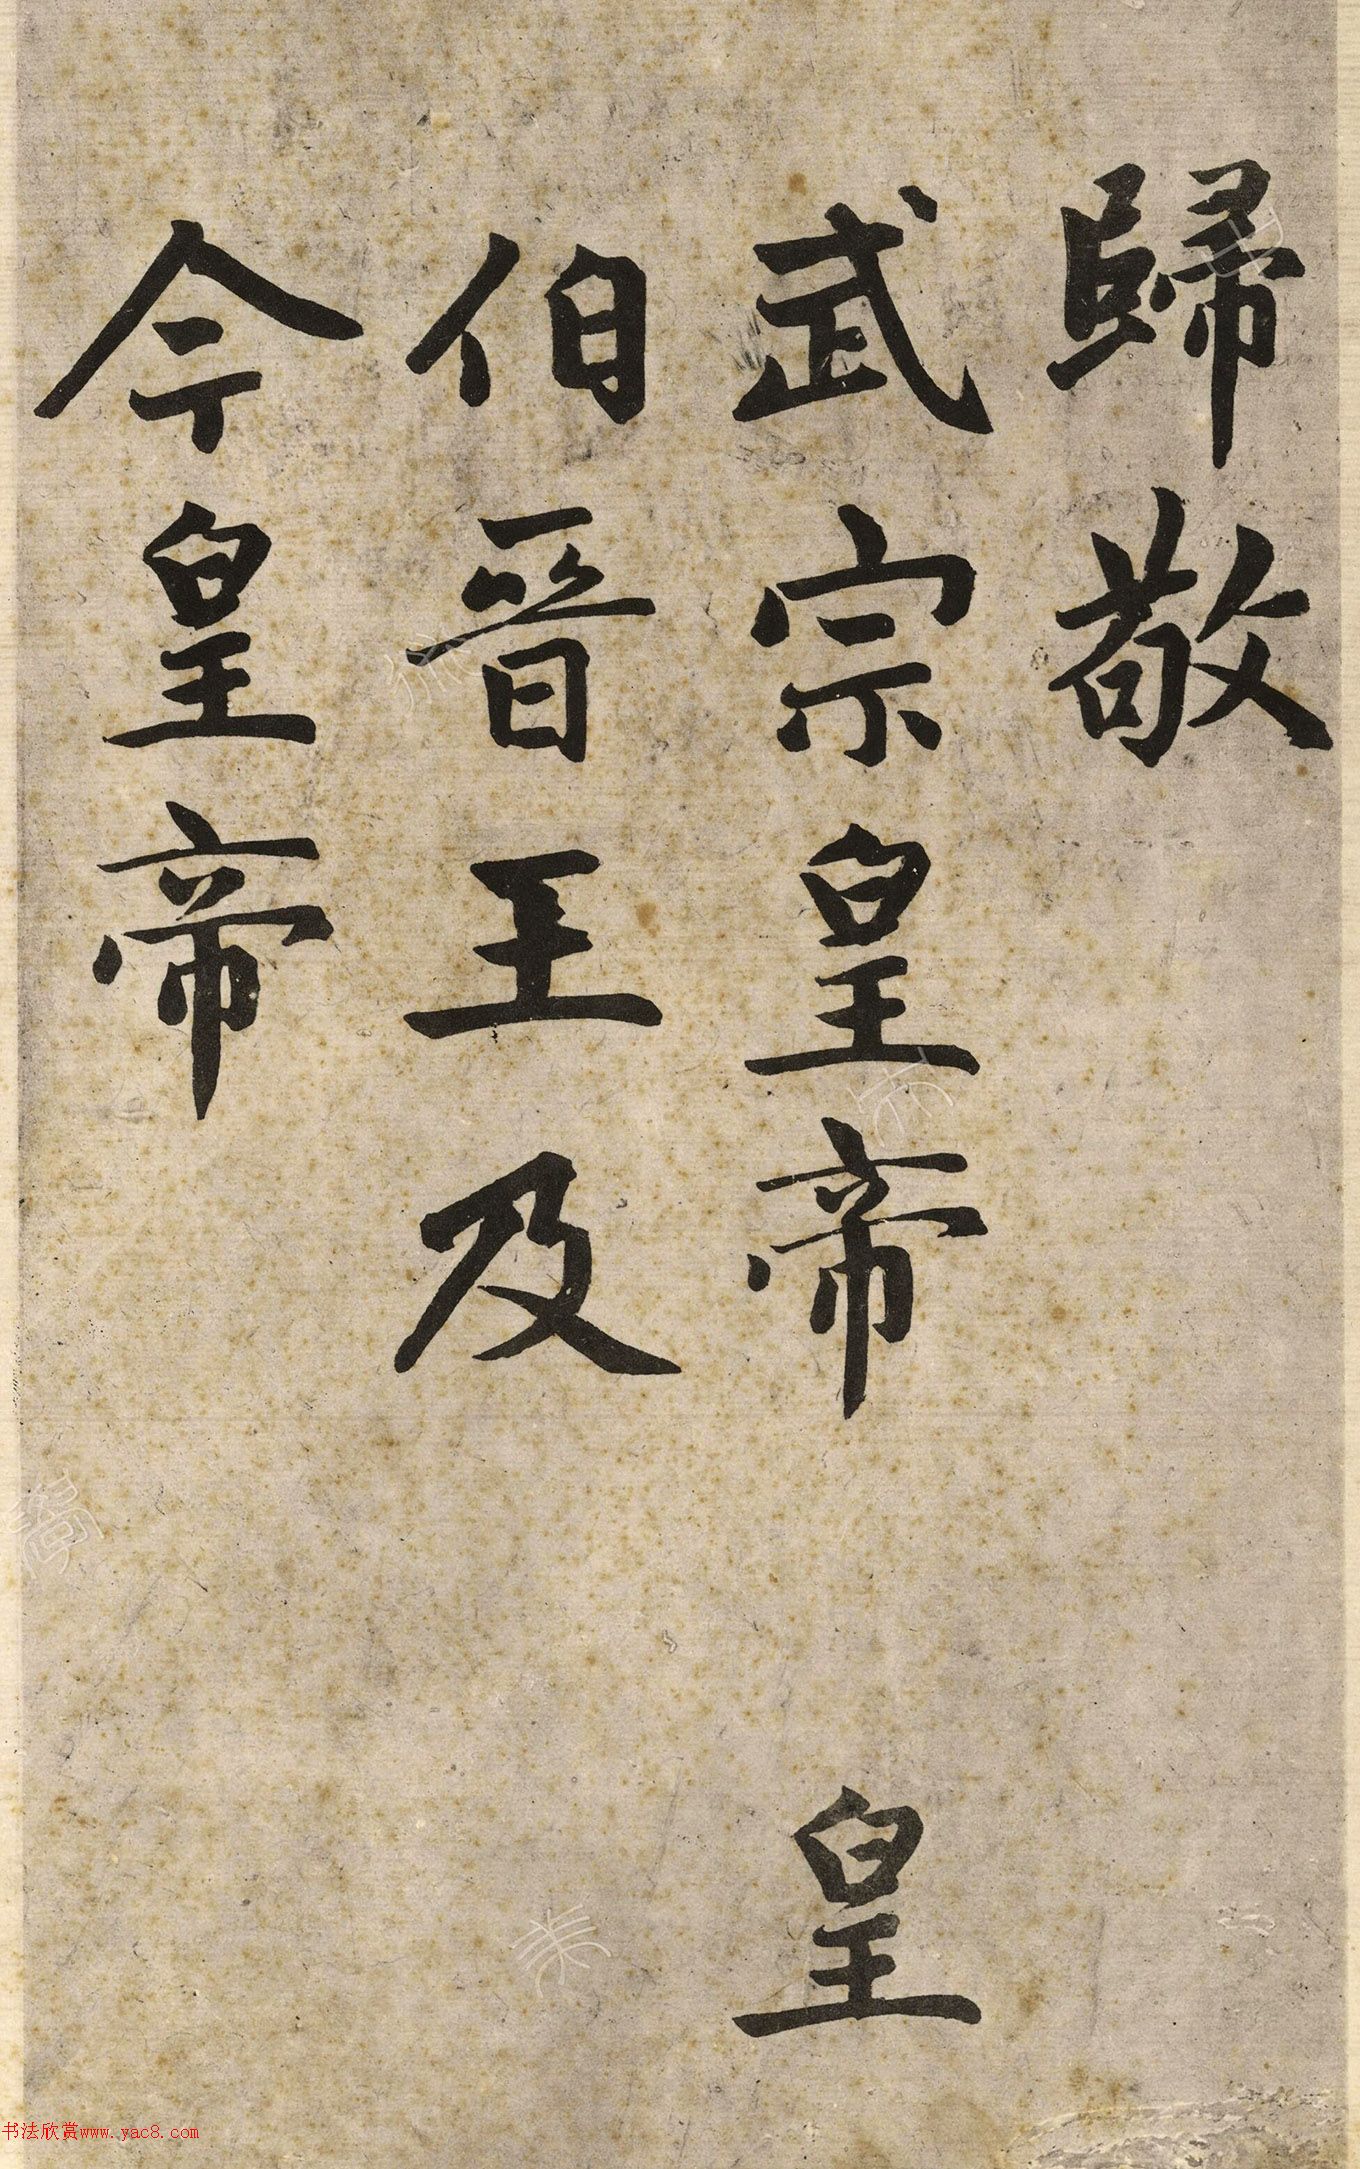 歸敬
武宗皇帝 皇
伯晉王及
今皇帝
书法欣赏www.yac8.com